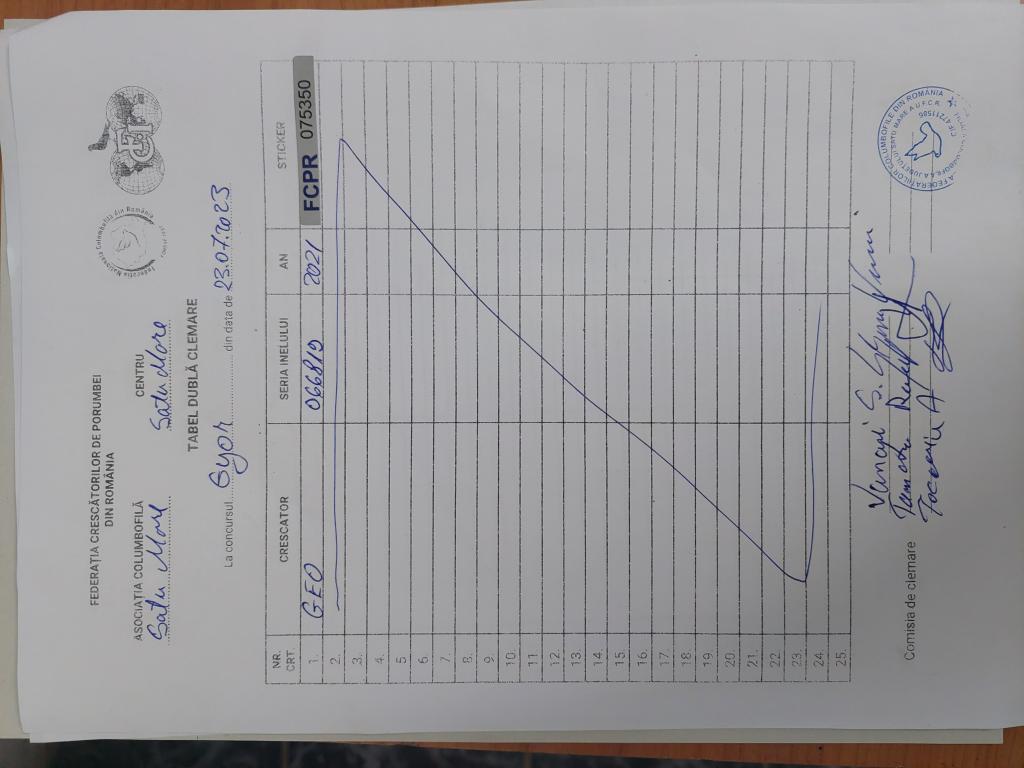 FEDERAȚIA CRESCĂTORILOR DE PORUMBEI
DIN ROMÂNIA
ASOCIAȚIA COLUMBOFILĂ CENTRU
Satu Mare Satu Mare
TABEL DUBLĂ CLEMARE
La concursul Gyor din data de 23.07.2023
NR. CRT CRESCATOR SERIA INELULUI AN STICKER
1. GEO 066819 2021 FCPR 075350
2.
3.
4.
5
6.
7.
8.
9.
10.
11
12.
13.
14.
15.
16.
17.
18.
19.
20.
21.
22
23.
24.
25.
Comisia de clemare